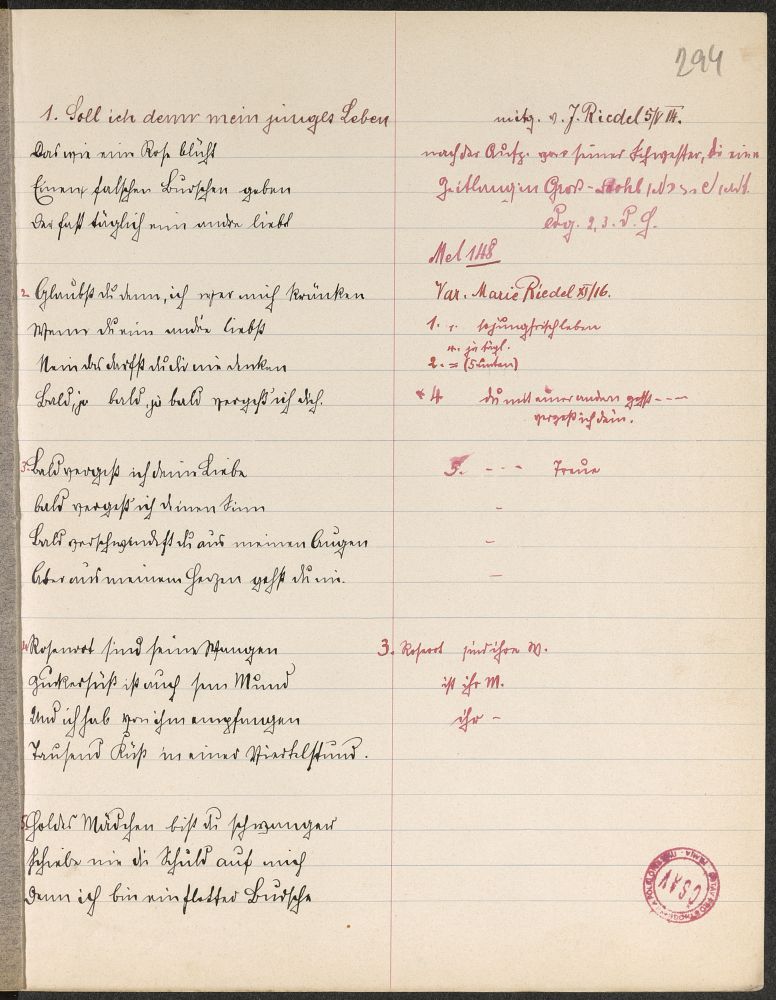 294
1. Soll ich denn mein junges Leben
Das wie eine Rose blüht
Einem falschen Burschen geben
Der fast täglich ein andre liebt
2 Glaubst du denn, ich wer mich kränken
Wenn du eine andre liebst
Nein das darfst du dir nie denken
Bald, ja bald, ja bald vergeß ich dich.
3. Bald vergeß ich deine Liebe
bald vergeß ich deinen Sinn
Bald verschwindest du aus meinen Augen
Aber aus meinem Herzen gehst du nie.
4 Rosenrot sind seine Wangen
Zuckersüß ist auch sein Mund
Und ich hab von ihm empfangen
Tausend Küß in einer Viertelstund.
5 Holdes Mädchen bist du schwanger
schiebe nie die Schuld auf mich
Denn ich bin ein flotter Bursche
mitg. v. J. Riedel 5/V 14.
nach der Aufz. von seiner Schwester, die eine
Zeitlang in Gros-
Mel 148
Var. Marie Riedel XI/16.
1. so jung frisch leben
2. = (5 unten)
* 4 du mit einer andern gehst - - -
vergeß ich dein.
5. - - - Treue
-
-
-
3. Rosenrot sind ihre W.
ist ihr M.
ihr -
ČSAV